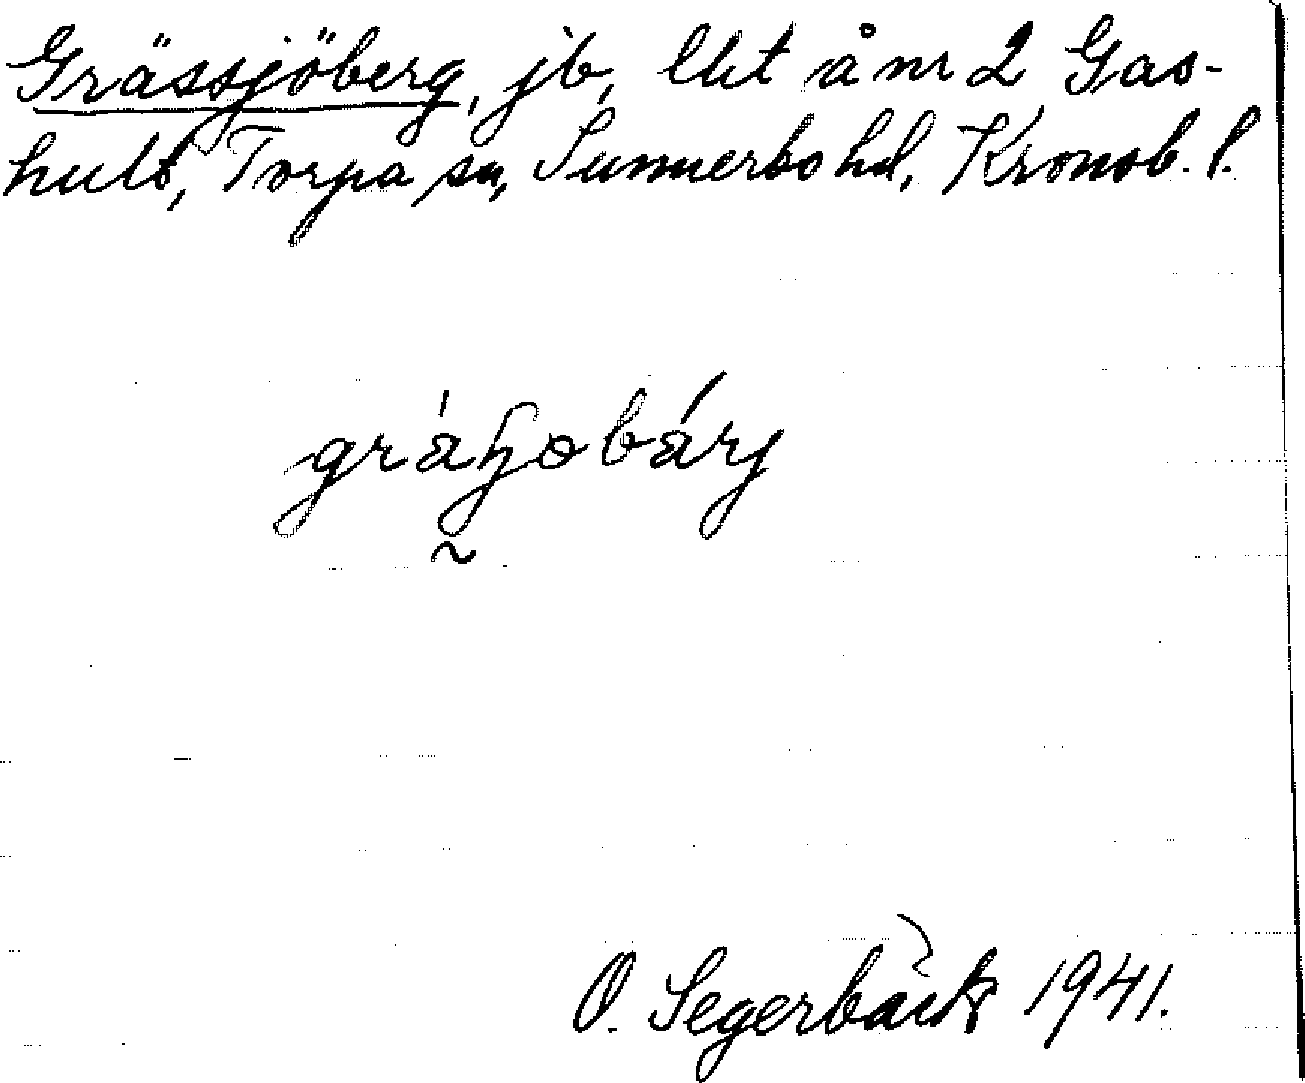 Grässjöberg, jb, lht å nr 2 Gas-
hult, Torpa sn, Sunnerbo hd, Kronob. l.
O. Segerbäck 1941.